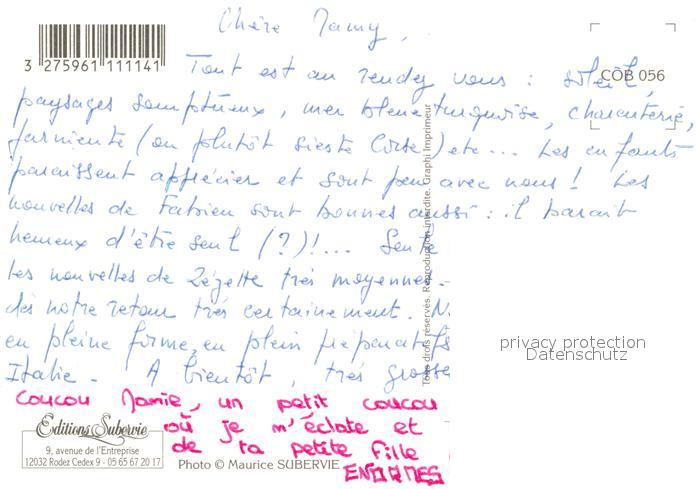 Chère Jamy,
Tout est au rendez vous : soleil,
COB 056
paysages somptueux, mer bleue turquoise, charcuterie,
farniente (ou plutôt sieste Corse) etc... Les enfants
paraissent apprécier et sont peu avec nous ! Les
nouvelles de Fabien sont bonnes aussi : il paraît
heureux d'être seul (?)!...
Les nouvelles de Zézette très moyennes.
dès notre retour très certainement. N
en pleine forme, en plein préparatifs
Italie - A bientôt, très grosse
coucou Jamie, un petit coucou
où je m'éclate et
de ta petite fille
ENORMES
3 275961 111141
Tous droits réservés. Reproduction interdite. Graphi Imprimeur
privacy protection
Datenschutz
Editions Subervie
9, avenue de l'Entreprise
12032 Rodez Cedex 9 - 05 65 67 20 17
Photo © Maurice SUBERVIE